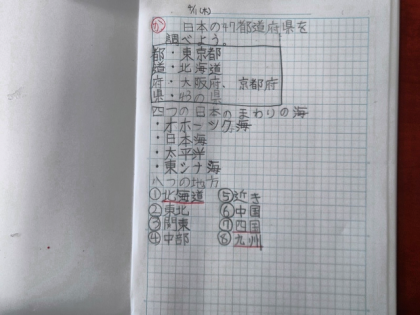 9/1(木)
か 日本の47都道府県を
調べよう。
都・東京都
道・北海道
府・大阪府、京都府
県・43の県
四つの日本のまわりの海
・オホーツク海
・日本海
・太平洋
・東シナ海
八つの地方
①北海道 ⑤近き
②東北 ⑥中国
③関東 ⑦四国
④中部 ⑧九州